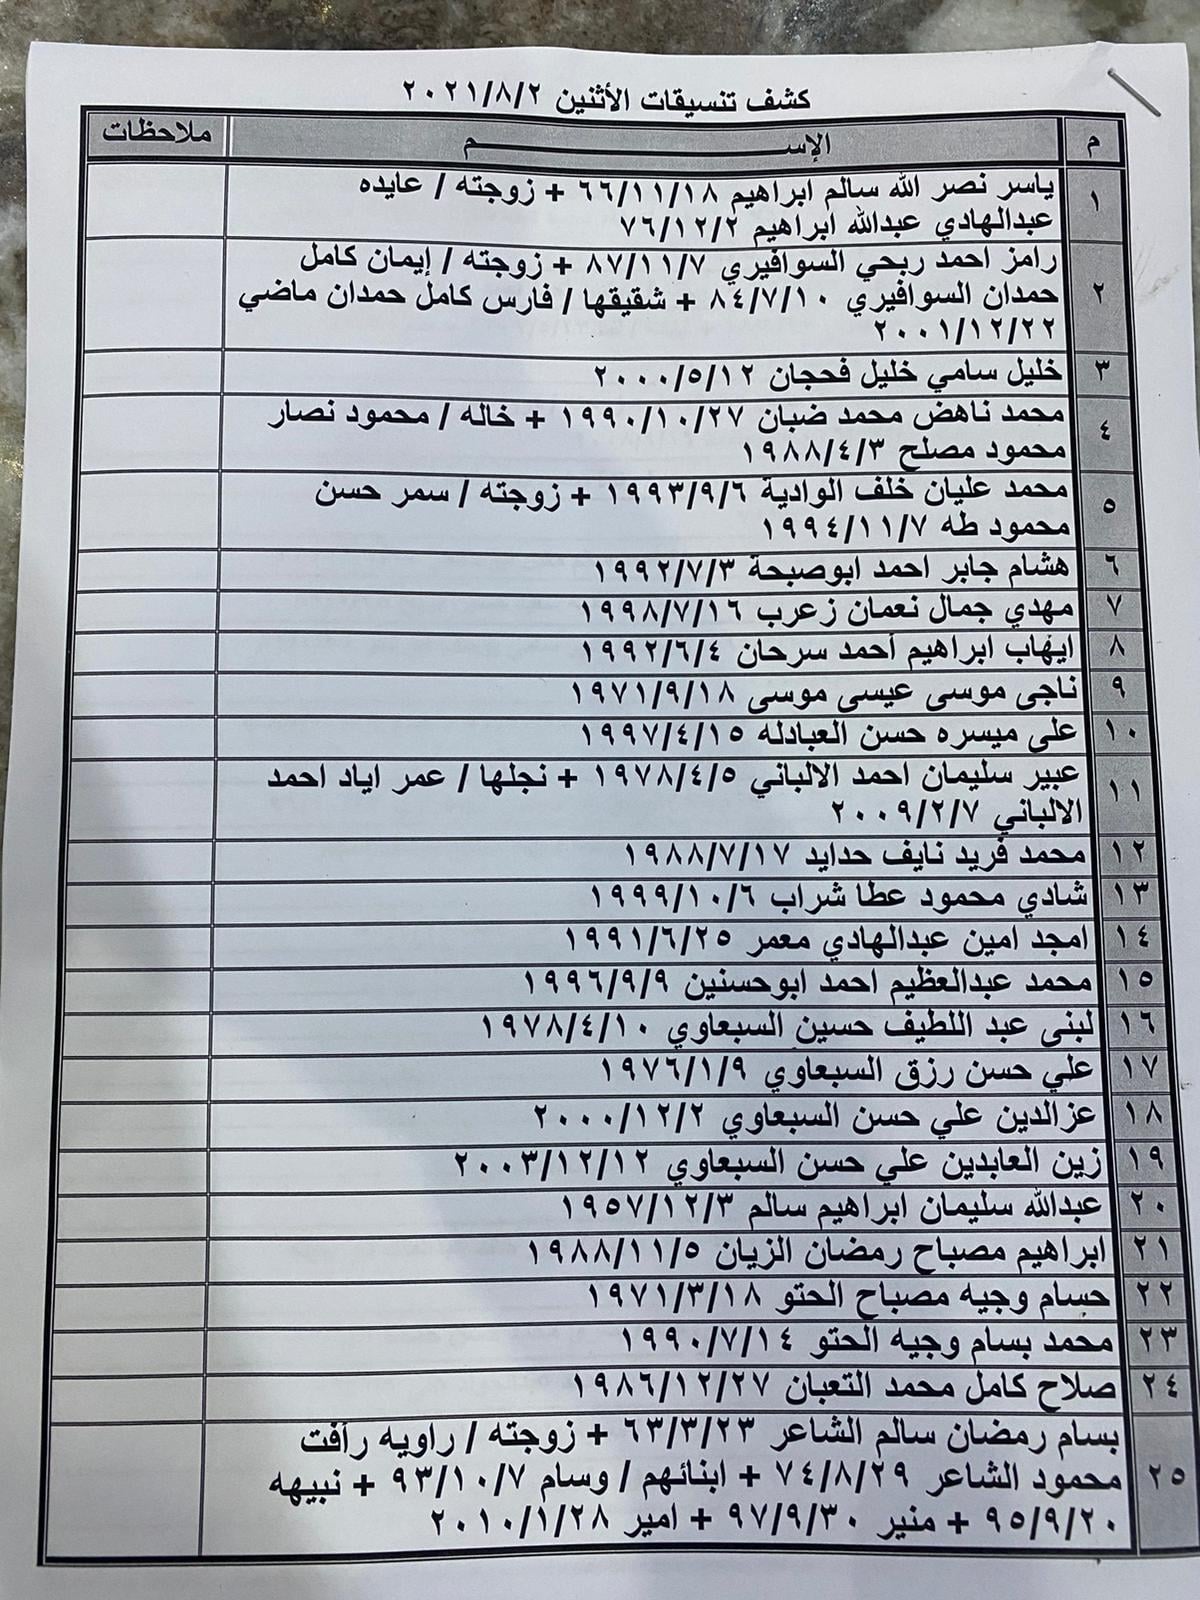 كشف تنسيقات الأثنين ٢٠٢١/٨/٢
م الإســـــــــم ملاحظات
١ ياسر نصر الله سالم ابراهيم ٦٦/١١/١٨ + زوجته / عايده
عبدالهادي عبدالله ابراهيم ٧٦/١٢/٢
رامز احمد ربحي السوافيري ٨٧/١١/٧ + زوجته / إيمان كامل
٢ حمدان السوافيري ٨٤/٧/١٠ + شقيقها / فارس كامل حمدان ماضي
٢٠٠١/١٢/٢٢
٣ خليل سامي خليل فحجان ٢٠٠٠/٥/١٢
٤ محمد ناهض محمد ضبان ١٩٩٠/١٠/٢٧ + خاله / محمود نصار
محمود مصلح ١٩٨٨/٤/٣
٥ محمد عليان خلف الوادية ١٩٩٣/٩/٦ + زوجته / سمر حسن
محمود طه ١٩٩٤/١١/٧
٦ هشام جابر احمد ابوصبحة ١٩٩٢/٧/٣
٧ مهدي جمال نعمان زعرب ١٩٩٨/٧/١٦
٨ ايهاب ابراهيم أحمد سرحان ١٩٩٢/٦/٤
٩ ناجى موسى عيسى موسى ١٩٧١/٩/١٨
١٠ على ميسره حسن العبادله ١٩٩٧/٤/١٥
١١ عبير سليمان احمد الالباني ١٩٧٨/٤/٥ + نجلها / عمر اياد احمد
الالباني ٢٠٠٩/٢/٧
١٢ محمد فريد نايف حدايد ١٩٨٨/٧/١٧
١٣ شادي محمود عطا شراب ١٩٩٩/١٠/٦
١٤ امجد امين عبدالهادي معمر ١٩٩١/٦/٢٥
١٥ محمد عبدالعظيم احمد ابوحسنين ١٩٩٦/٩/٩
١٦ لبنى عبد اللطيف حسين السبعاوي ١٩٧٨/٤/١٠
١٧ علي حسن رزق السبعاوي ١٩٧٦/١/٩
١٨ عزالدين علي حسن السبعاوي ٢٠٠٠/١٢/٢
١٩ زين العابدين علي حسن السبعاوي ٢٠٠٣/١٢/١٢
٢٠ عبدالله سليمان ابراهيم سالم ١٩٥٧/١٢/٣
٢١ ابراهيم مصباح رمضان الزيان ١٩٨٨/١١/٥
٢٢ حسام وجيه مصباح الحتو ١٩٧١/٣/١٨
٢٣ محمد بسام وجيه الحتو ١٩٩٠/٧/١٤
٢٤ صلاح كامل محمد التعبان ١٩٨٦/١٢/٢٧
بسام رمضان سالم الشاعر ٦٣/٣/٢٣ + زوجته / راويه رأفت
٢٥ محمود الشاعر ٧٤/٨/٢٩ + ابنائهم / وسام ٩٣/١٠/٧ + نبيهه
٩٥/٩/٢٠ + منير ٩٧/٩/٣٠ + امير ٢٠١٠/١/٢٨